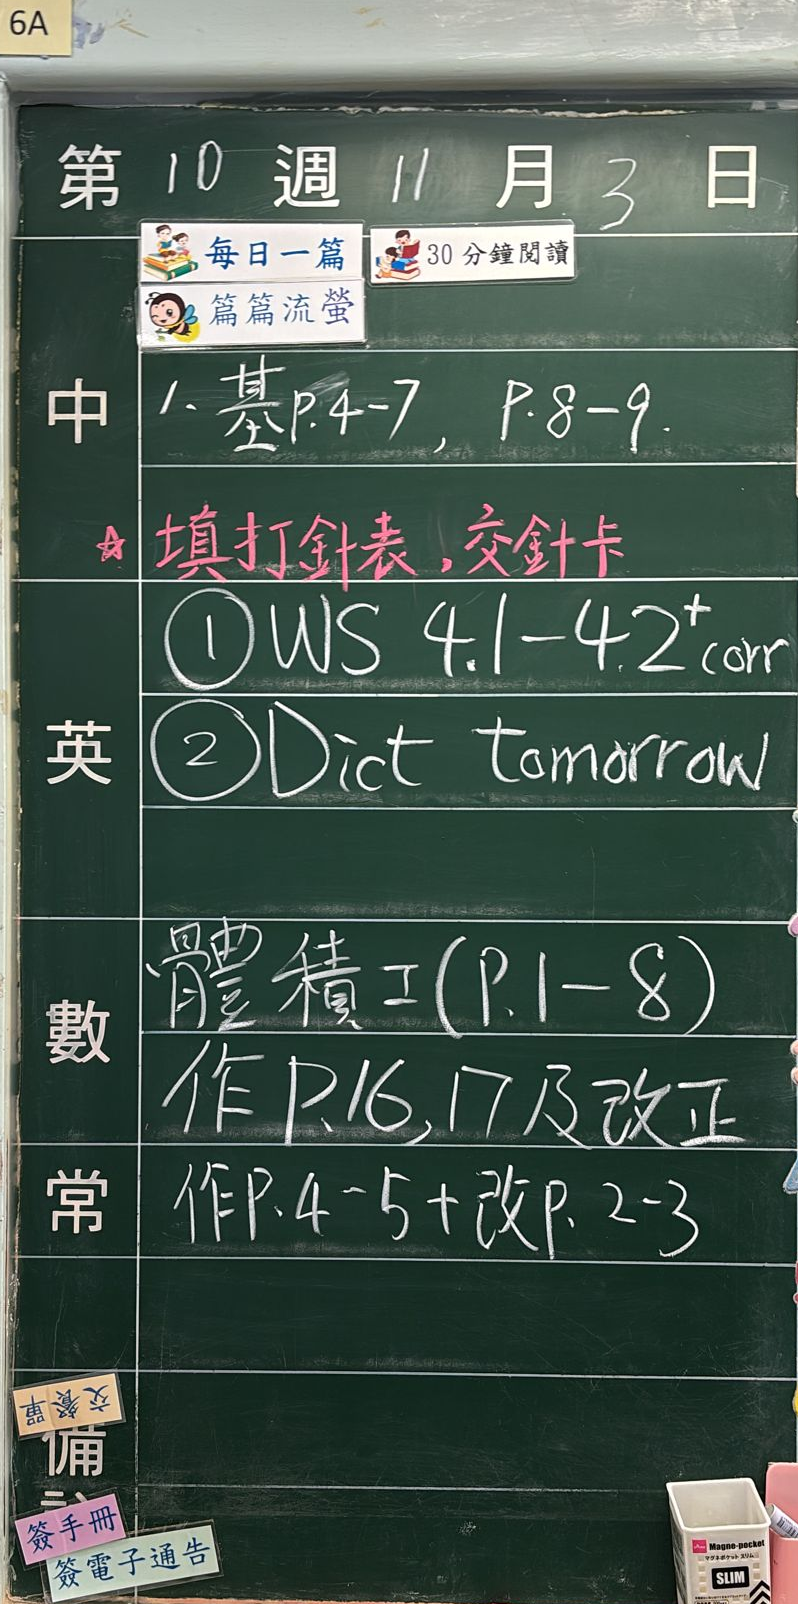 6A
第 10 週 11 月 3 日
每日一篇 30 分鐘閱讀
篇篇流螢
中 1. 基P.4-7, P.8-9.
☆ 填打針表，交針卡
① WS 4.1-4.2 + corr
英 ② Dict tomorrow
體積I(P.1-8)
數
作P.16,17及改正
常 作P.4-5+改P.2-3
交餐單
備
簽手冊
簽電子通告
Magne-pocket
マグネポケット スリム
SLIM